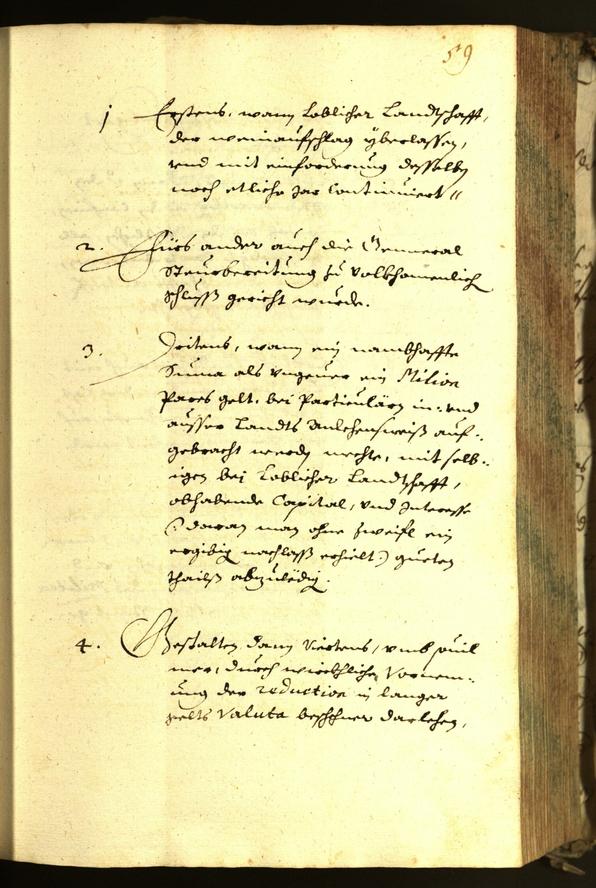 59
1 Erstens, wann Loblicher Landtschafft,
der weinaufschlag yberlassen,
vnd mit einforderung desselben
noch etliche Jar Continuiert
2. Fürs ander auch die General
Steurbereitung zu volkhomenlich
schluß gericht wurde.
3. Dritens, wann ein nambhaffte
Summa als vngeuer ein Milion
Pares gelt, bei Particularn in: vnd
ausser Landts Anlehensweiß auf-
gebracht werden mechte, mit selb-
igen bei Loblicher Landtschafft,
obhabende Capital, vnd Interesse
(: daran man ohne Zweifl ein
ergibig nachlass erhielt :) gueten
thailß abzuledig.
4. Gestalten dann Viertens, vmb souil
mer, durch würkhliche Vornem-
ung der reduction in langer
gelts Valuta beschehner darlehen,